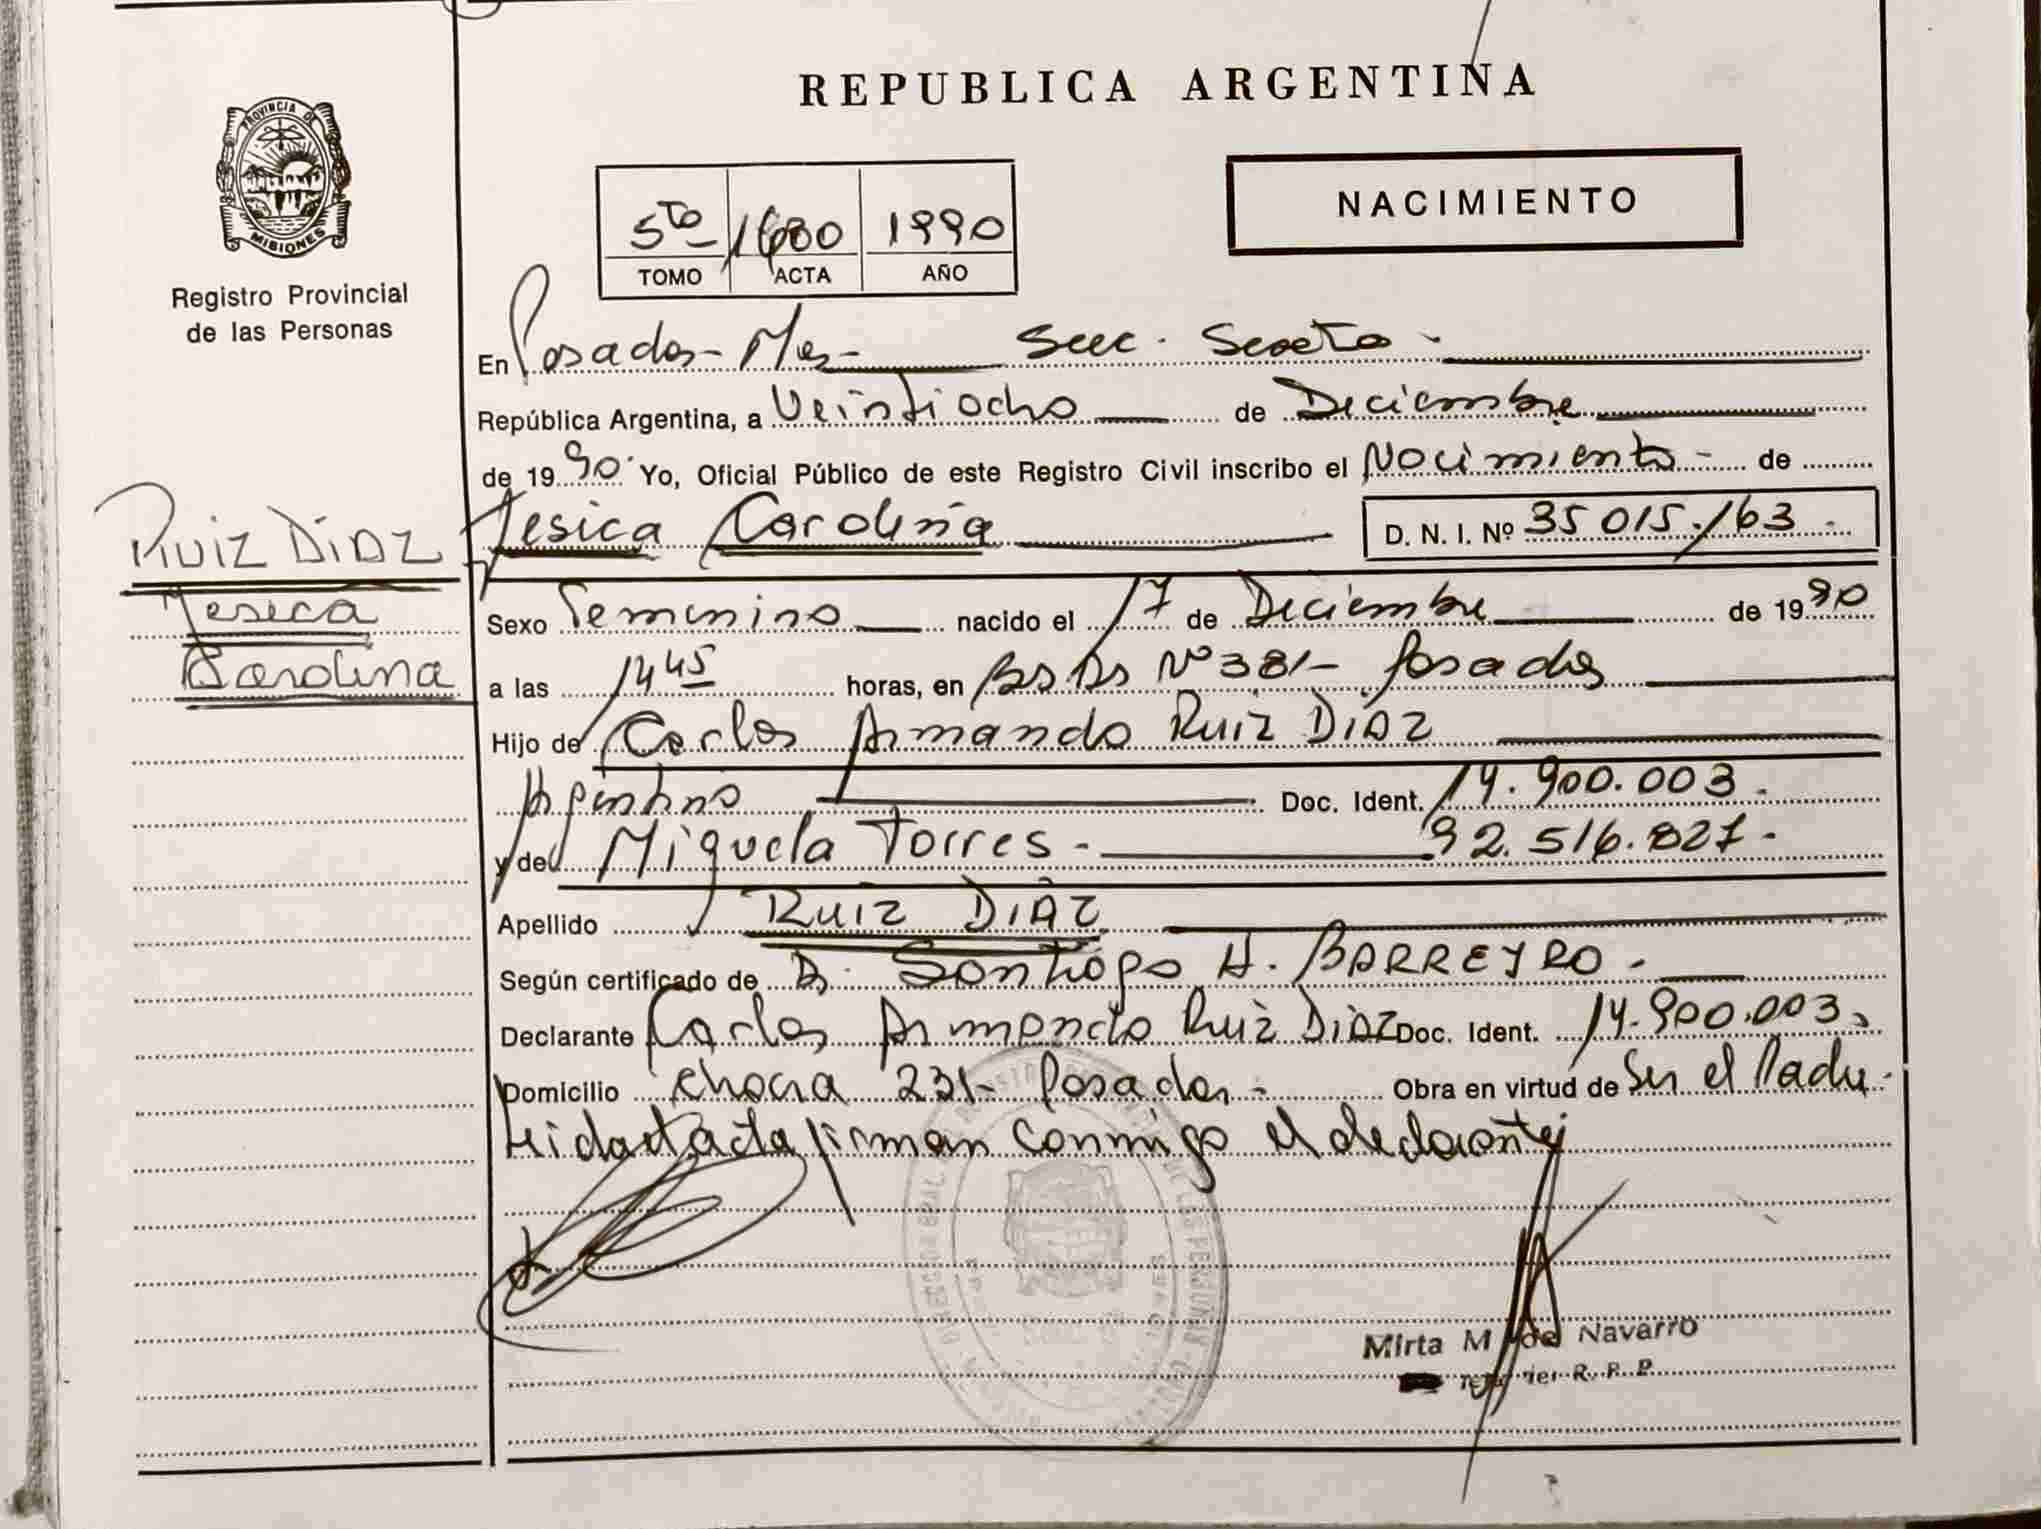 REPUBLICA ARGENTINA
PROVINCIA DE
MISIONES
Registro Provincial
de las Personas
NACIMIENTO
5to 1680 1990
TOMO ACTA AÑO
En Posadas - Mes - Secc. Sexta -
República Argentina, a Veintiocho de Diciembre
de 1990 Yo, Oficial Público de este Registro Civil inscribo el Nacimiento - de
Jesica Carolina D. N. I. Nº 35 015.163 -
RUIZ DIAZ
Jesica
Carolina
Sexo Femenino nacido el 17 de Diciembre de 1990
a las 14 45 horas, en Bs As Nº 381 - Posadas
Hijo de Carlos Armando Ruiz DIAZ
Argentino Doc. Ident. 14.900.003.
y de Miguela Torres - 92.516.827 -
Apellido RUIZ DIAZ
Según certificado de Dr. Santiago H. BARREYRO -
Declarante Carlos Armando Ruiz DIAZ Doc. Ident. 14.900.003
Domicilio Chacra 231 - Posadas - Obra en virtud de Ser el Padre -
Leida el acta firman conmigo el declarante
Mirta M de Navarro
R. P. P.